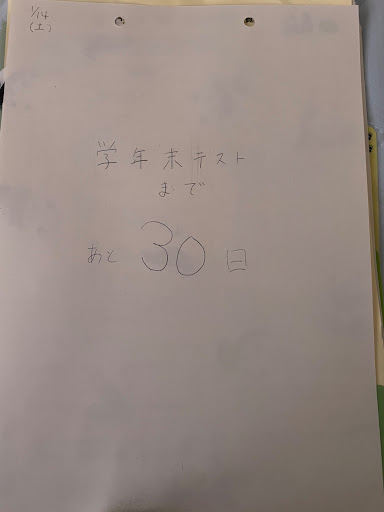 1/14
(土)
学年末テスト
まで
あと 30 日